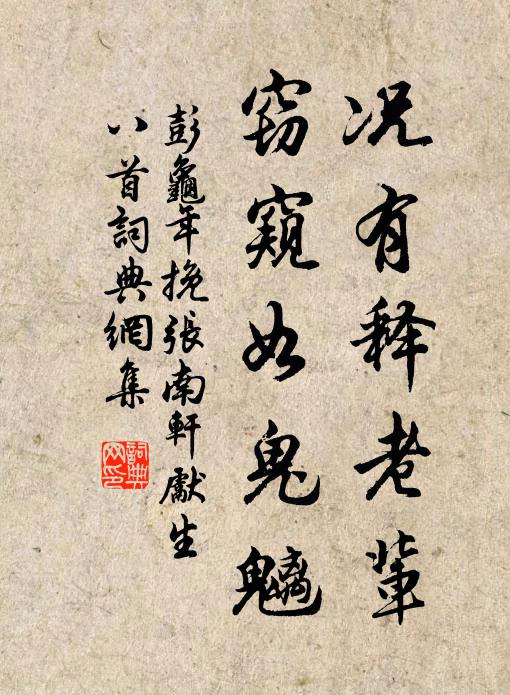 况有释老輩
窃窺如鬼魑
彭龜年挽張南軒獻生
八首詞典網集
詞典网印